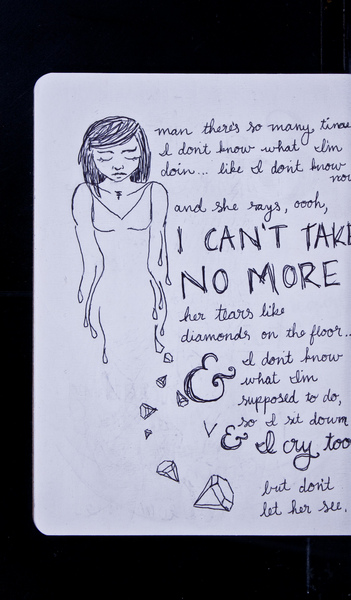 man there's so many times
I dont know what I'm
doin... like I don't know
now
and she says, oooh,
I CAN'T TAKE
NO MORE
her tears like
diamonds on the floor...
& I don't know
what I'm
supposed to do,
so I sit down
& I cry too
but don't
let her see.